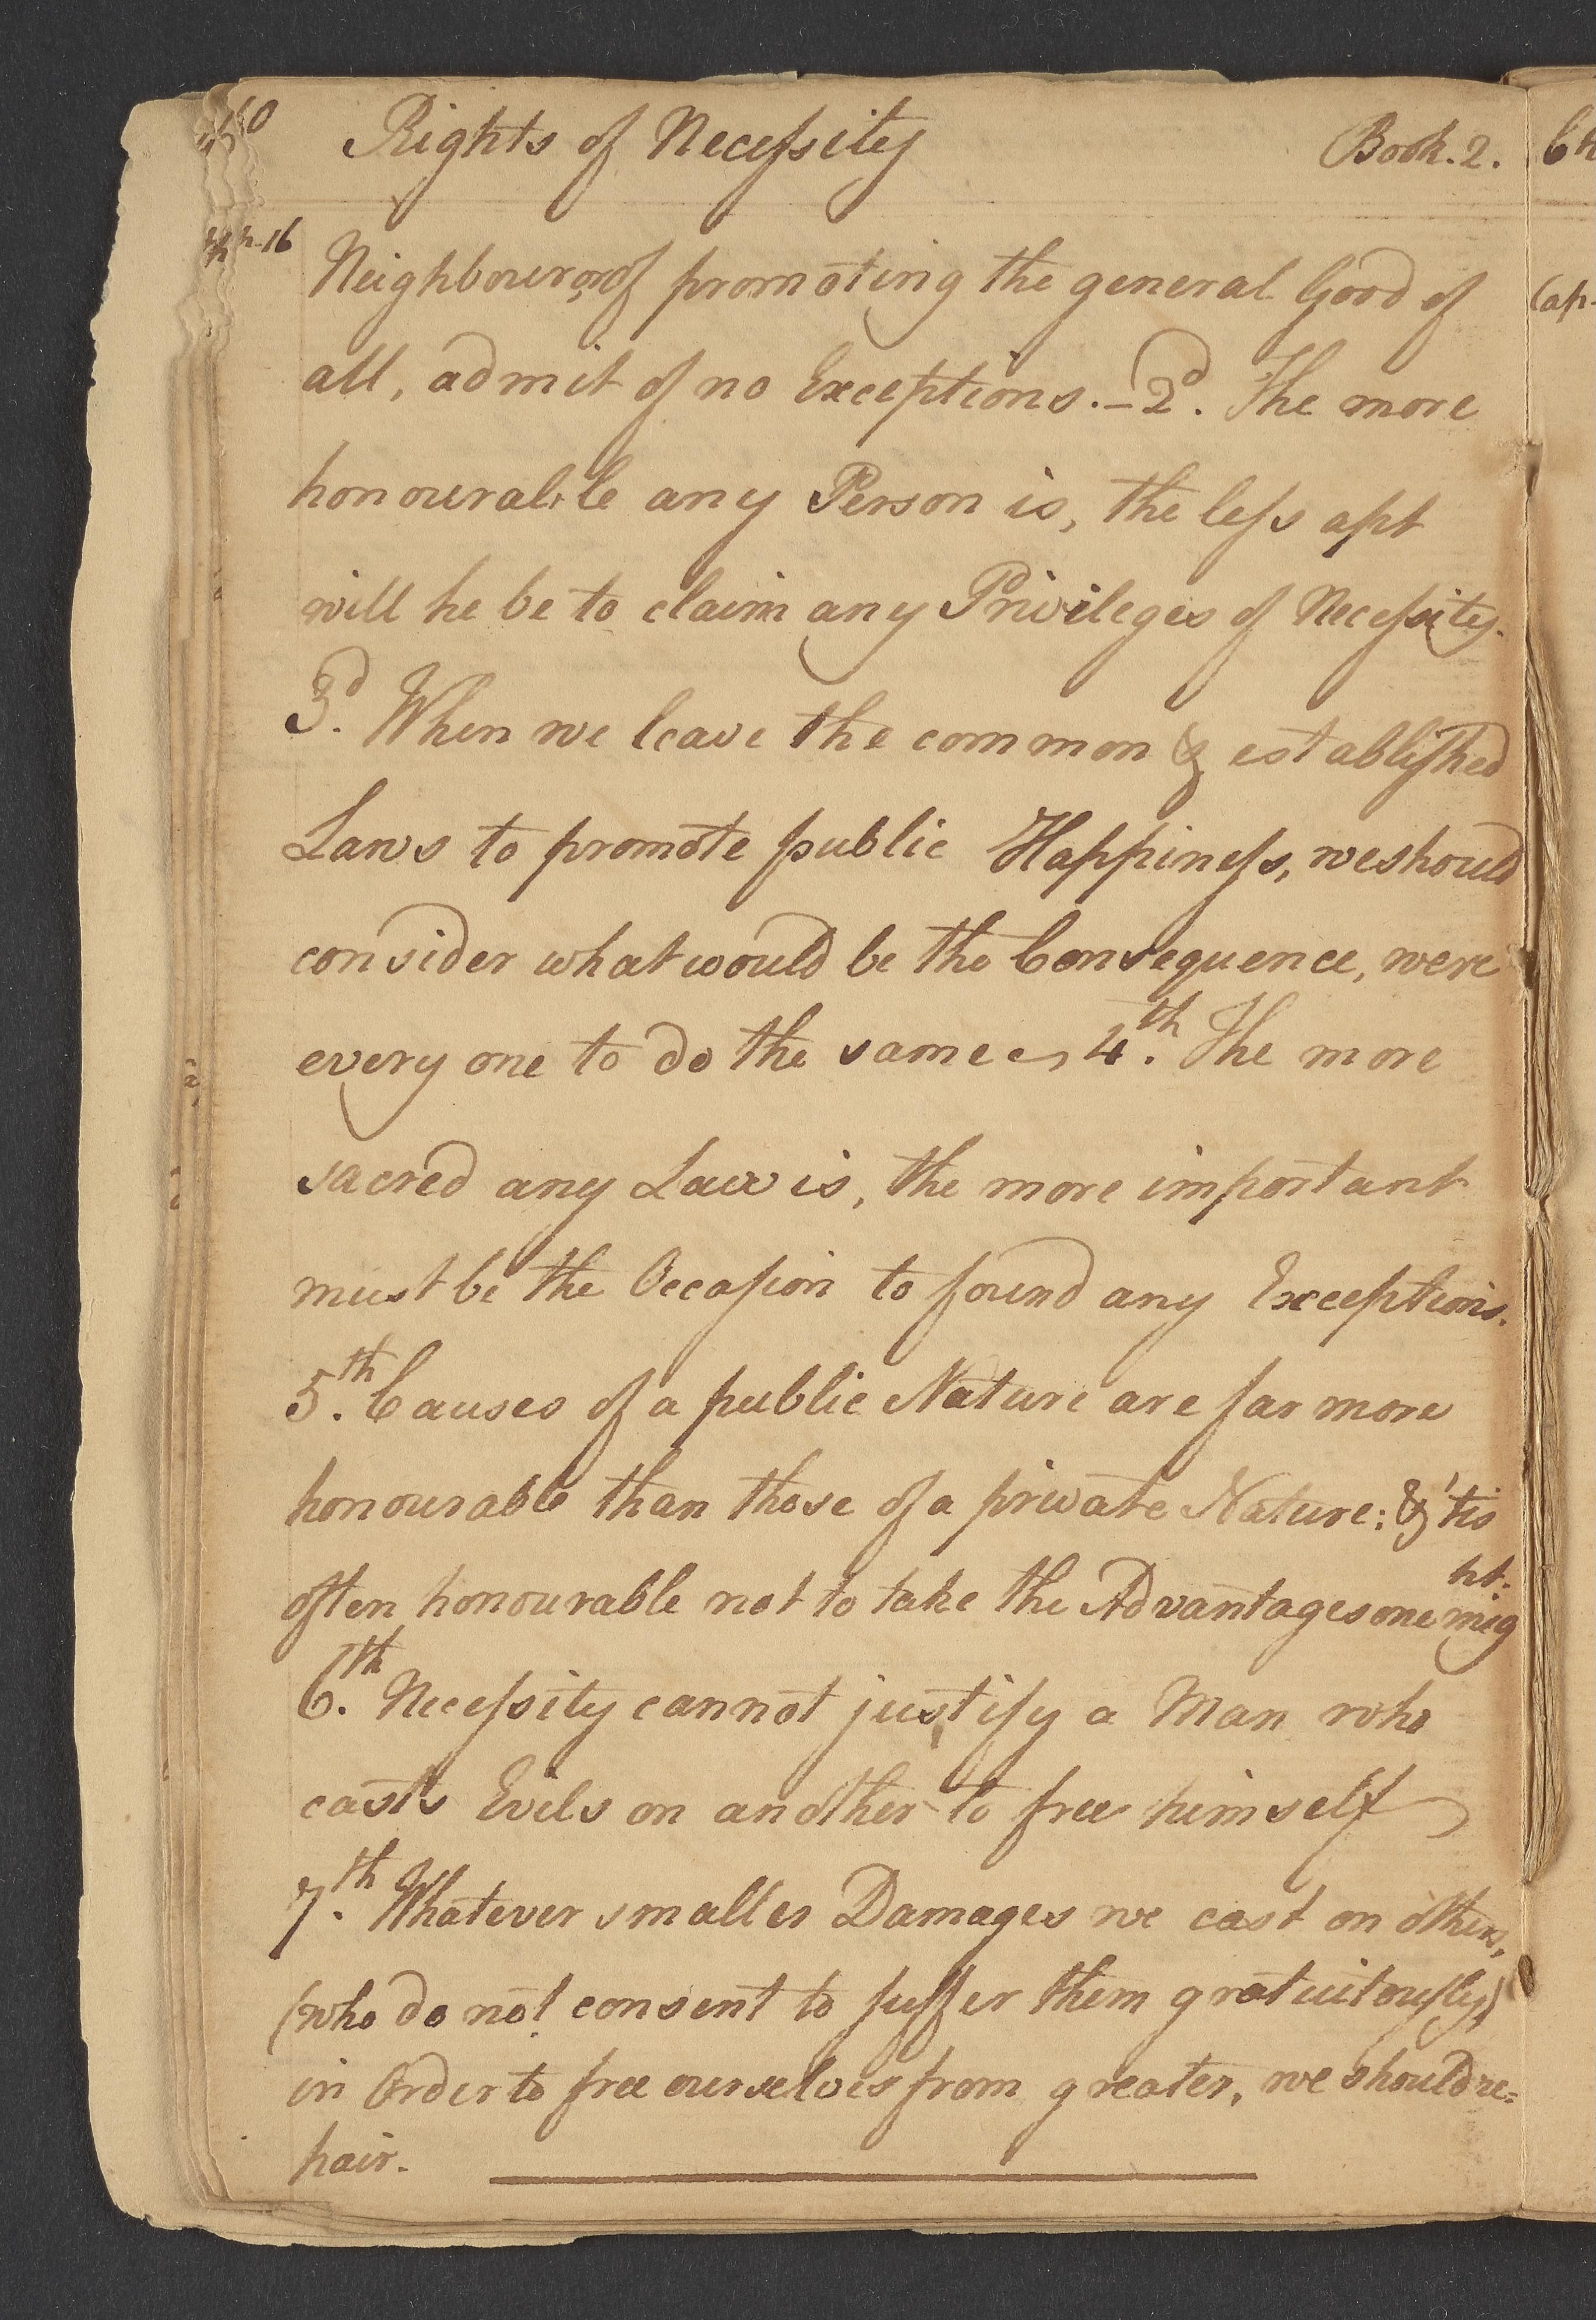 Rights of Necessity Book. 2.
p. 16
Neighbour, or of promoting the general Good of
all, admit of no Exceptions. – 2d. The more
honourable any Person is, the less apt
will he be to claim any Privileges of Necessity.
3d. When we leave the common & established
Laws to promote public Happiness, we should
consider what would be the Consequence, were
every one to do the same 4th. The more
sacred any Law is, the more important
must be the Occasion to found any Exceptions.
5th. Causes of a public Nature are far more
honourable than those of a private Nature; & 'tis
often honourable not to take the Advantages one might.
6th. Necessity cannot justify a Man who
casts Evils on another to free himself
7th. Whatever smaller Damages we cast on others,
(who do not consent to suffer them gratuitously)
in Order to free ourselves from greater, we should re=
pair.